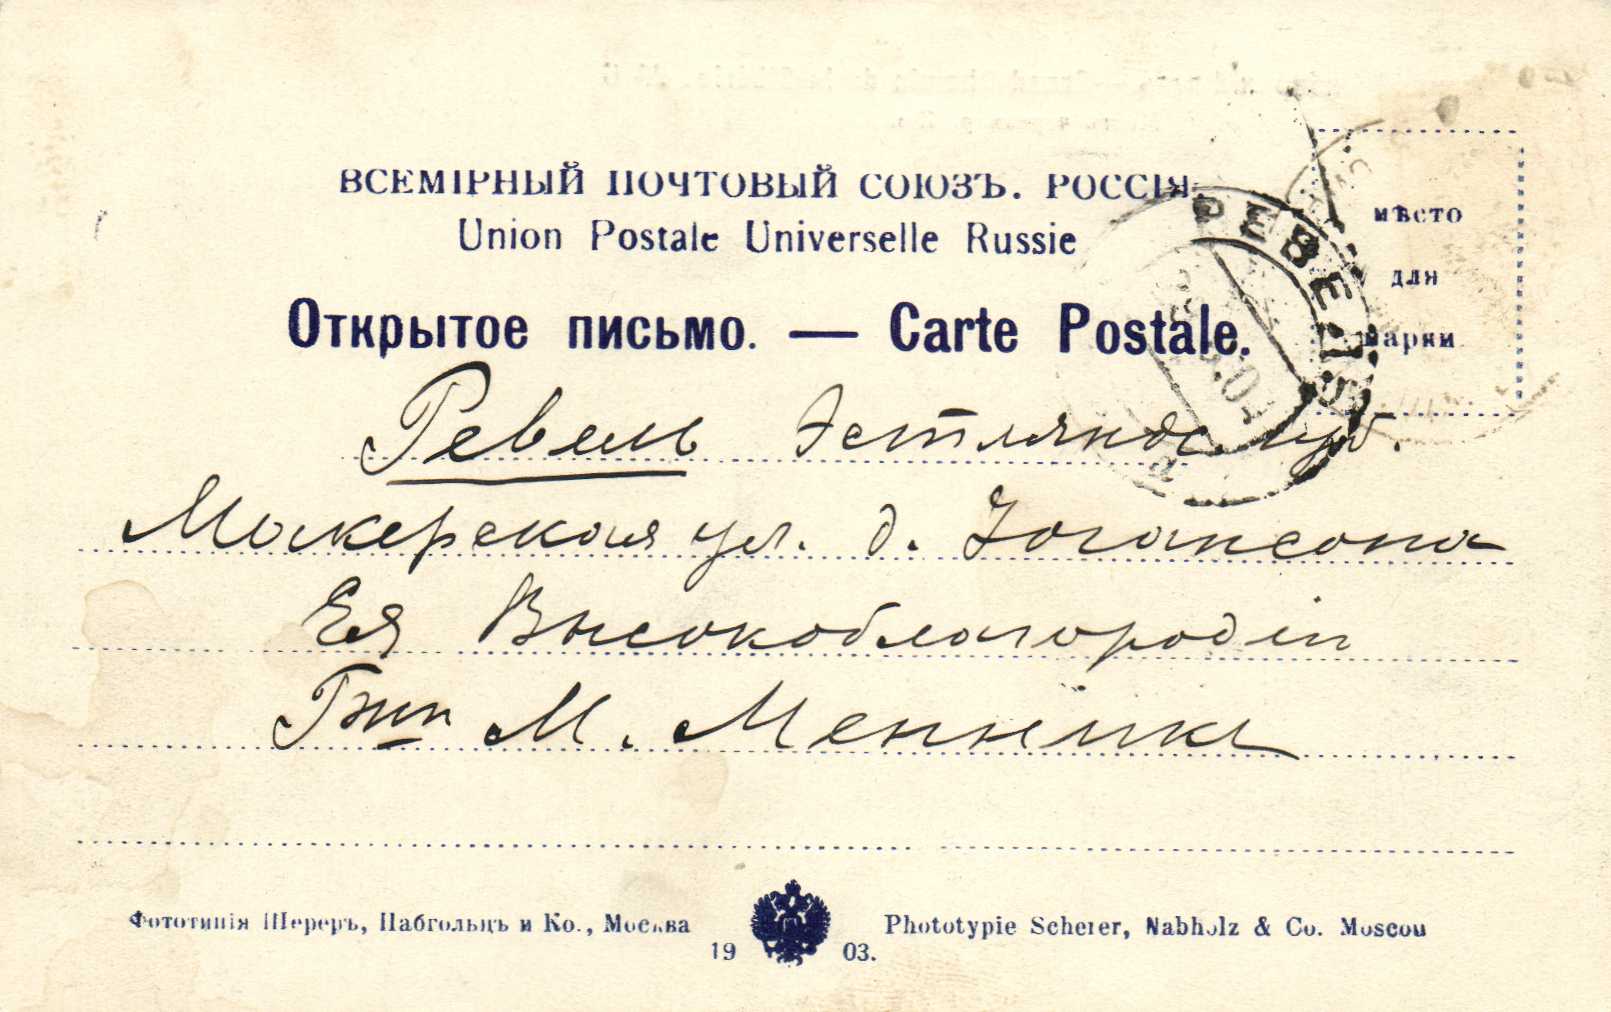 ВСЕМІРНЫЙ ПОЧТОВЫЙ СОЮЗЪ. РОССІЯ.
Union Postale Universelle Russie
мѣсто
для
марки
РЕВЕЛЬ
Открытое письмо. — Carte Postale.
Ревель Эстляндс. губ.
Макерская ул. д. Іогансона
Ея Высокоблагородію
Гжѣ М. Меннике
Фототипія Шереръ, Набгольцъ и Ко., Москва
Phototypie Scherer, Nabholz & Co. Moscou
1903.